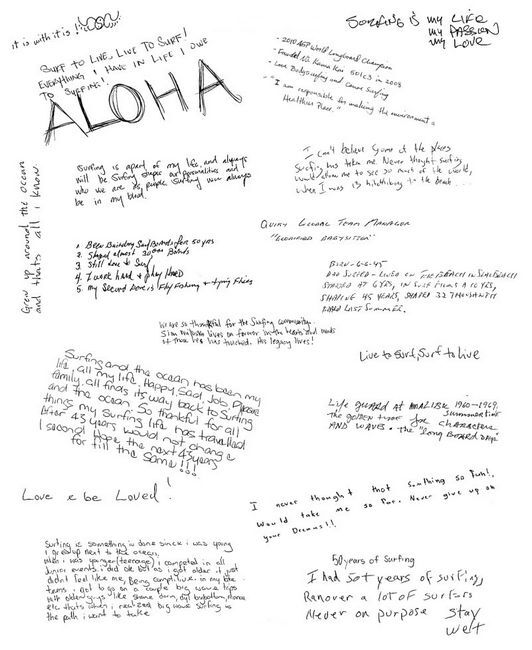 it is with it is!
SURF TO LIVE, LIVE TO SURF!
EVERYTHING I HAVE IN LIFE I OWE
TO SURFING!!
ALOHA
SURFING IS my LIFE
my PASSION
my LOVE
- 2010 ASP World Longboard Champion
- Founded
in 2003
- Love Bodysurfing and Canoe Surfing
- "I am responsible for making the environment a
Healthier Place."
Surfing is apart of my life, and always
will be. Surfing shapes our personalities and
who we are as people. Surfing will always
be in my blood.
I can't believe some of the places
Surfing has taken me. Never thought surfing
would allow me to see so much of the world,
when I was 13 hitchhiking to the beach...
Grew up around the ocean
and thats all i know
1. Been Building Surf Boards for 50 yrs
2. Shaped almost Boards
3. Still love to Surf
4. I work hard & play HARD
5. my Second Love is Fly Fishing & tying Flies
QUIKY GLOBAL TEAM MANAGER
"GLORIFIED BABYSITTER"
BORN - 6-6-45
DAD SURFED - LIVED ON THE BEACH IN
STARTED AT 6 YRS, IN SURF FILMS AT 16 YRS,
SHAPING 45 YEARS, SHAPED 32 THOUSAND
LAST SUMMER.
We are so thankful for the Surfing community.
lives on forever in the hearts and minds
of those he has touched. His legacy lives!
Live to surf, Surf to live
Surfing and the ocean has been my
life, all my life. Happy, Sad, Job,
family, all finds its way back to Surfing
and the ocean. So thankful for all
things my surfing life has travelled
After 43 years would not change
1 second. Hope the next 43 years
r till the same!!!
Life guard at MALIBU 1960-1969,
the golden time for summertime
characters
AND WAVES. the "Long BOARD DAYS"
Love & be Loved!
I never thought that somthing so fun!,
Would take me so far. Never give up on
your Dreams!!
Surfing is something iv done since i was young
I grew up next to the ocean.
when i was younger (teenage) i competed in all
Junior events. i did ok but as i got older it just
didn't feel like me, being competitive. in my late
teens i got to go on a couple big wave trips
with older guys like
etc thats when i realized big wave surfing is
the path i want to take
50 years of Surfing
I had 50+ years of surfing,
Ran over a lot of surfers
Never on purpose Stay
wet